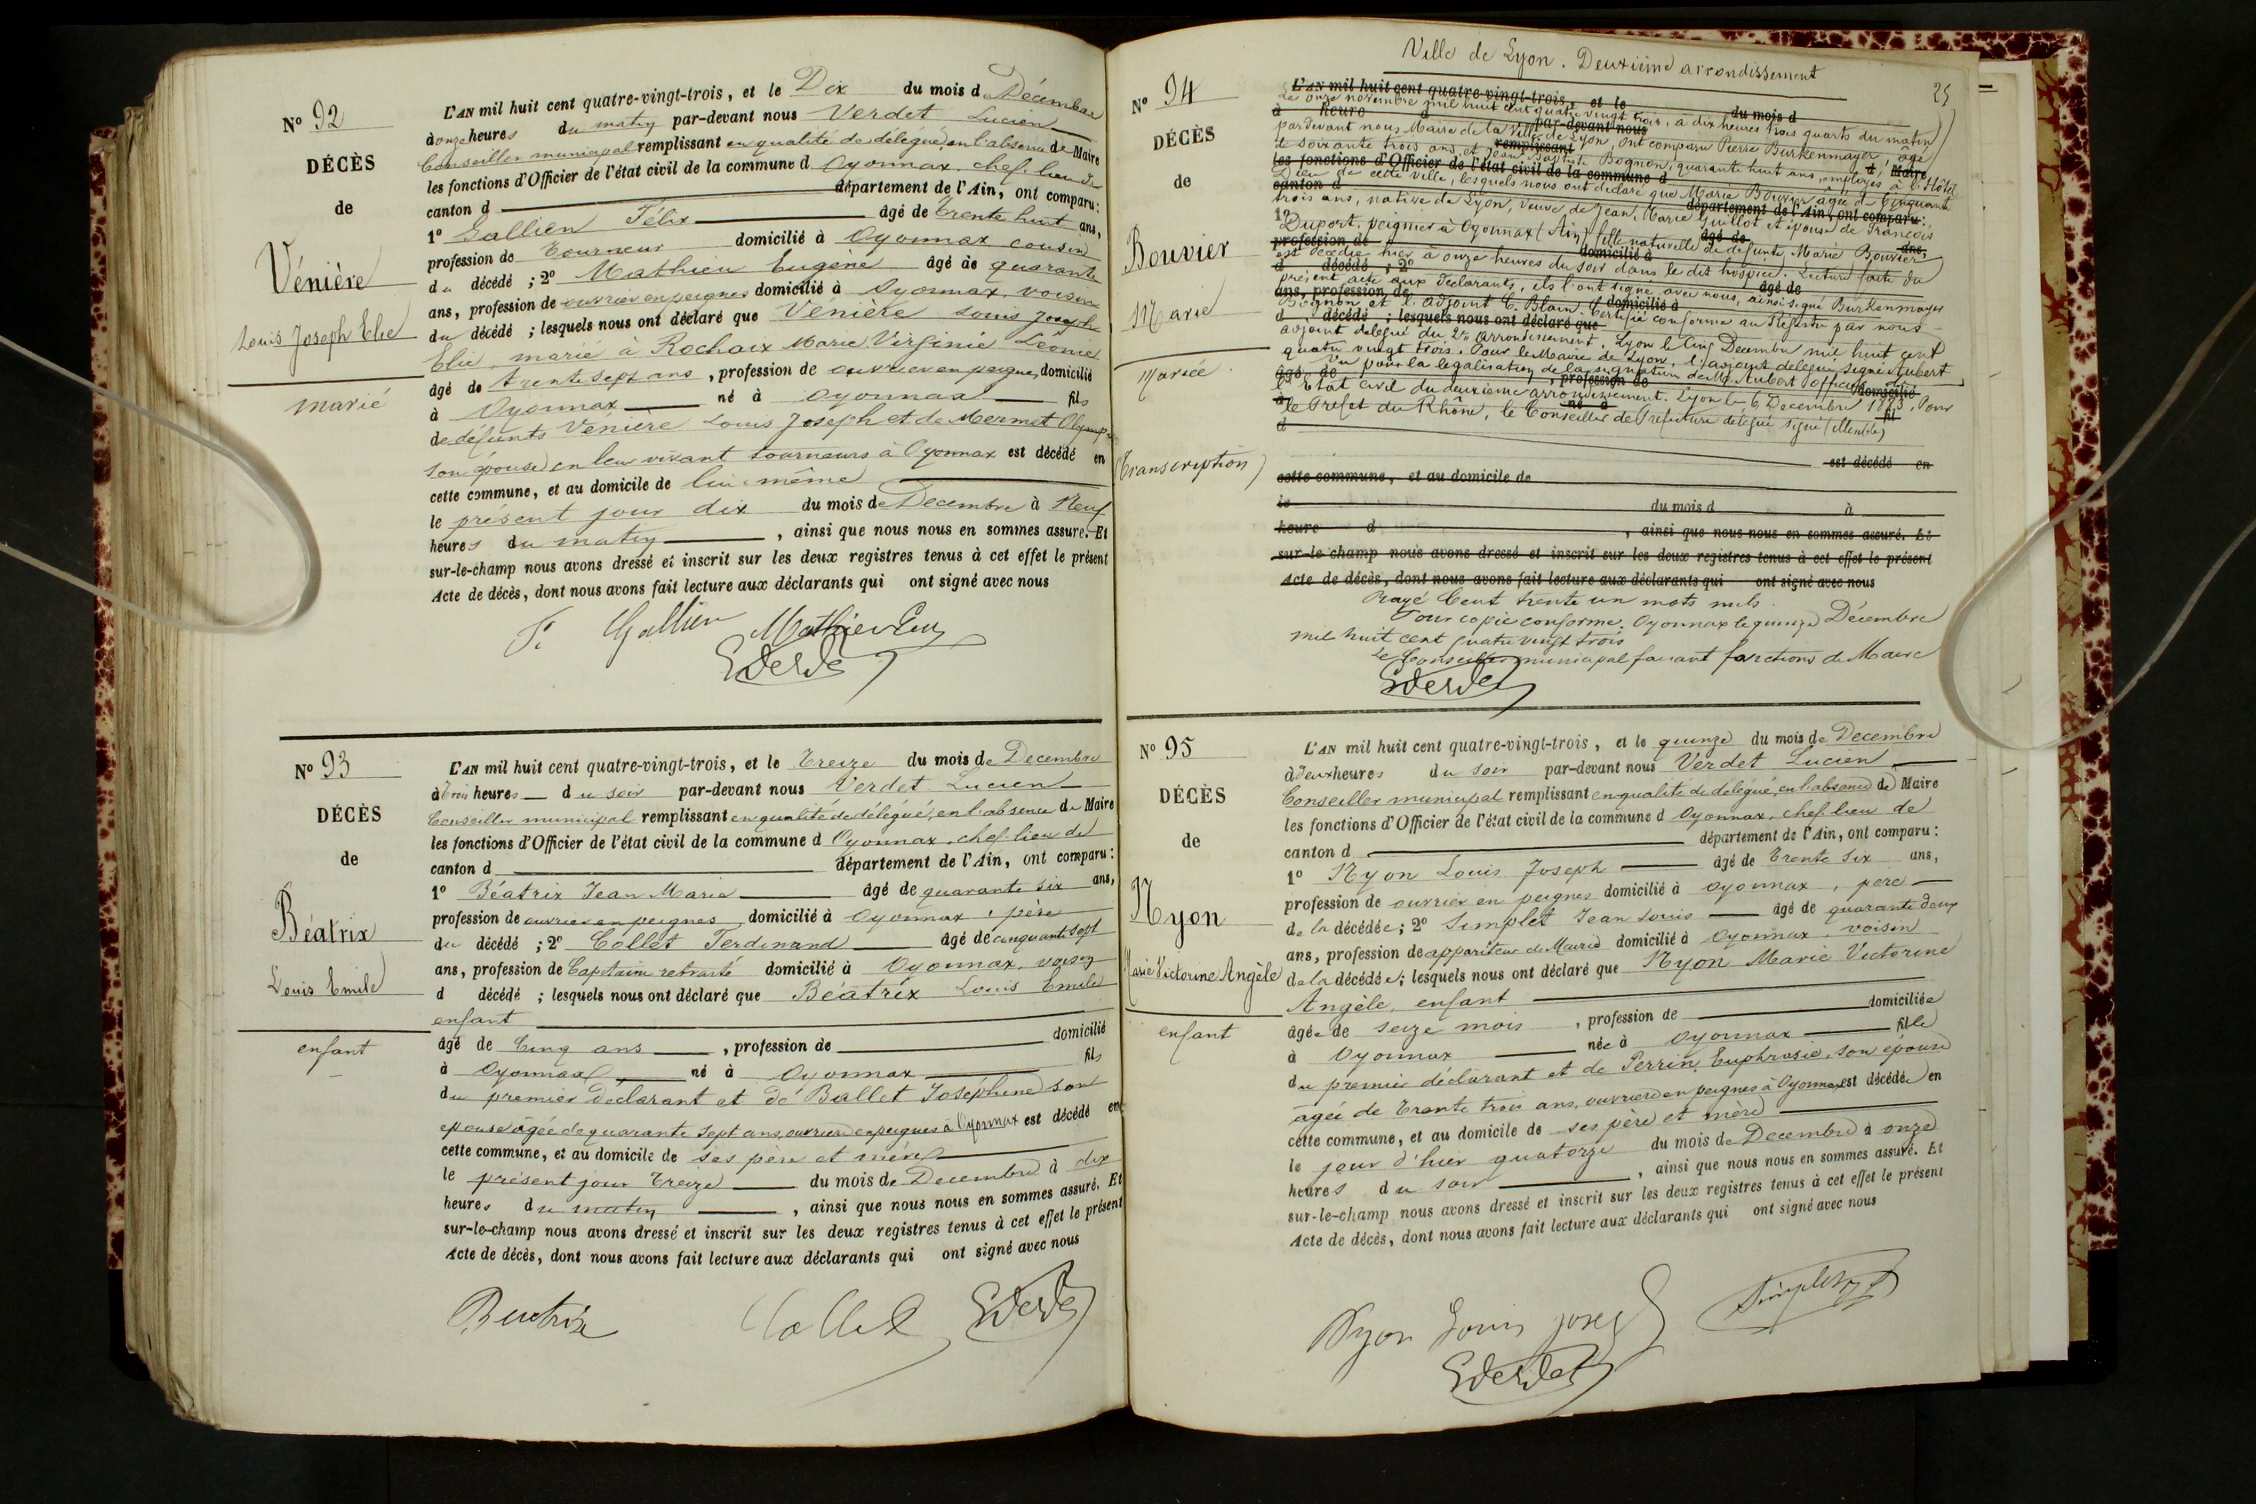 N° 92
DÉCÈS
de
Vénière
Louis Joseph Elie
marié
L'AN mil huit cent quatre-vingt-trois, et le Dix du mois de Décembre
à onze heures du matin par-devant nous Verdet Lucien
Conseiller municipal remplissant en qualité de délégué en l'absence de Maire
les fonctions d'Officier de l'état civil de la commune d Oyonnax, chef-lieu de
canton d département de l'Ain, ont comparu :
1° Gallien Félix âgé de Trente huit ans,
profession de Tourneur domicilié à Oyonnax cousin
du décédé ; 2° Mathieu Eugène âgé de quarante
ans, profession de ouvrier en peignes domicilié à Oyonnax, voisin
du décédé ; lesquels nous ont déclaré que Vénière Louis Joseph
Elie, marié à Rochaix Marie Virginie Léonie
âgé de trente sept ans, profession de ouvrier en peignes, domicilié
à Oyonnax né à Oyonnax fils
de défunts Vénière Louis Joseph et de Mermet Olympe
son épouse en leur vivant tourneurs à Oyonnax est décédé en
cette commune, et au domicile de lui-même
le présent jour dix du mois de Décembre à Neuf
heures du matin, ainsi que nous nous en sommes assuré. Et
sur-le-champ nous avons dressé et inscrit sur les deux registres tenus à cet effet le présent
Acte de décès, dont nous avons fait lecture aux déclarants qui ont signé avec nous
F. Gallien Mathieu Eug
Verdet
N° 93
DÉCÈS
de
Béatrix
Louis Emile
enfant
L'AN mil huit cent quatre-vingt-trois, et le Treize du mois de Decembre
à trois heures du soir par-devant nous Verdet Lucien
Conseiller municipal remplissant en qualité de délégué, en l'absence de Maire
les fonctions d'Officier de l'état civil de la commune d Oyonnax, chef-lieu de
canton d département de l'Ain, ont comparu :
1° Béatrix Jean Marie âgé de quarante six ans,
profession de ouvrier en peignes domicilié à Oyonnax, père
du décédé ; 2° Collet Ferdinand âgé de cinquante sept
ans, profession de Capitaine retraité domicilié à Oyonnax, voisin
d décédé ; lesquels nous ont déclaré que Béatrix Louis Emile
enfant
âgé de Cinq ans, profession de domicilié
à Oyonnax né à Oyonnax fils
du premier déclarant et de Ballet Joséphine son
épouse âgée de quarante sept ans, ouvrière en peignes à Oyonnax est décédé en
cette commune, et au domicile de ses père et mère
le présent jour Treize du mois de Decembre à dix
heures du matin, ainsi que nous nous en sommes assuré. Et
sur-le-champ nous avons dressé et inscrit sur les deux registres tenus à cet effet le présent
Acte de décès, dont nous avons fait lecture aux déclarants qui ont signé avec nous
Beatrix Collet Verdet
25
Ville de Lyon. Deuxième arrondissement
N° 94
DÉCÈS
de
Bouvier
Marie
Mariée
(Transcription)
L'AN mil huit cent quatre-vingt-trois, et le du mois d
Le onze novembre mil huit cent quatre vingt trois, à dix heures trois quarts du matin
à heure d par-devant nous
pardevant nous Maire de la Ville de Lyon, ont comparu Pierre Burkenmayer, âgé
remplissant d Maire
de soixante trois ans, et Jean Baptiste Bognon, quarante huit ans, employés à l'Hôtel
les fonctions d'Officier de l'état civil de la commune d
Dieu de cette ville, lesquels nous ont déclaré que Marie Bouvier âgée de Cinquante
canton d département de l'Ain, ont comparu :
trois ans, native de Lyon, veuve de Jean Marie Guillot et épouse de François
1° âgé de ans,
Duport, peignier à Oyonnax (Ain) fille naturelle de défunte Marie Bouvier
profession de domicilié à
est décédée hier à onze heures du soir dans le dit hospice. Lecture faite du
d décédé ; 2° âgé de
présent acte aux Déclarants, ils l'ont signé avec nous, ainsi signé Burkenmayer
ans, profession de domicilié à
Bognon et l'adjoint C. Blain. Certifié conforme au Registre par nous
d décédé ; lesquels nous ont déclaré que
adjoint délégué du 2me Arrondissement. Lyon le Cinq Decembre mil huit cent
quatre vingt trois. Pour le Maire de Lyon, l'adjoint délégué signé Aubert
Vu pour la légalisation de la signature de Mr Aubert officier
âgé de, profession de domicilié
l'Etat civil du deuxième arrondissement. Lyon le 6 Decembre 1883. Pour
à né à fil
le Préfet du Rhône, le Conseiller de Préfecture délégué signé
d
est décédé en
cette commune, et au domicile de
le du mois d à
heure d, ainsi que nous nous en sommes assuré. Et
sur-le-champ nous avons dressé et inscrit sur les deux registres tenus à cet effet le présent
Acte de décès, dont nous avons fait lecture aux déclarants qui ont signé avec nous
Rayé Cent trente un mots nuls.
Pour copie conforme, Oyonnax le quinze Décembre
mil huit cent quatre vingt trois
Le Conseiller municipal faisant fonctions de Maire
Verdet
N° 95
DÉCÈS
de
Nyon
Marie Victorine Angèle
enfant
L'AN mil huit cent quatre-vingt-trois, et le quinze du mois de Decembre
à deux heures du soir par-devant nous Verdet Lucien
Conseiller municipal remplissant en qualité de délégué, en l'absence de Maire
les fonctions d'Officier de l'état civil de la commune d Oyonnax, chef-lieu de
canton d département de l'Ain, ont comparu :
1° Nyon Louis Joseph âgé de Trente Six ans,
profession de ouvrier en peignes domicilié à Oyonnax, père
de la décédée ; 2° Simplet Jean Louis âgé de quarante deux
ans, profession de appariteur de Mairie domicilié à Oyonnax, voisin
de la décédée ; lesquels nous ont déclaré que Nyon Marie Victorine
Angèle, enfant
âgée de seize mois, profession de domiciliée
à Oyonnax née à Oyonnax fille
du premier déclarant et de Perrin Euphrasie, son épouse
âgée de Trente trois ans, ouvrière en peignes à Oyonnax est décédée en
cette commune, et au domicile de ses père et mère
le jour d'hier quatorze du mois de Decembre à onze
heures du soir, ainsi que nous nous en sommes assuré. Et
sur-le-champ nous avons dressé et inscrit sur les deux registres tenus à cet effet le présent
Acte de décès, dont nous avons fait lecture aux déclarants qui ont signé avec nous
Nyon Louis Josep Simplet
Verdet